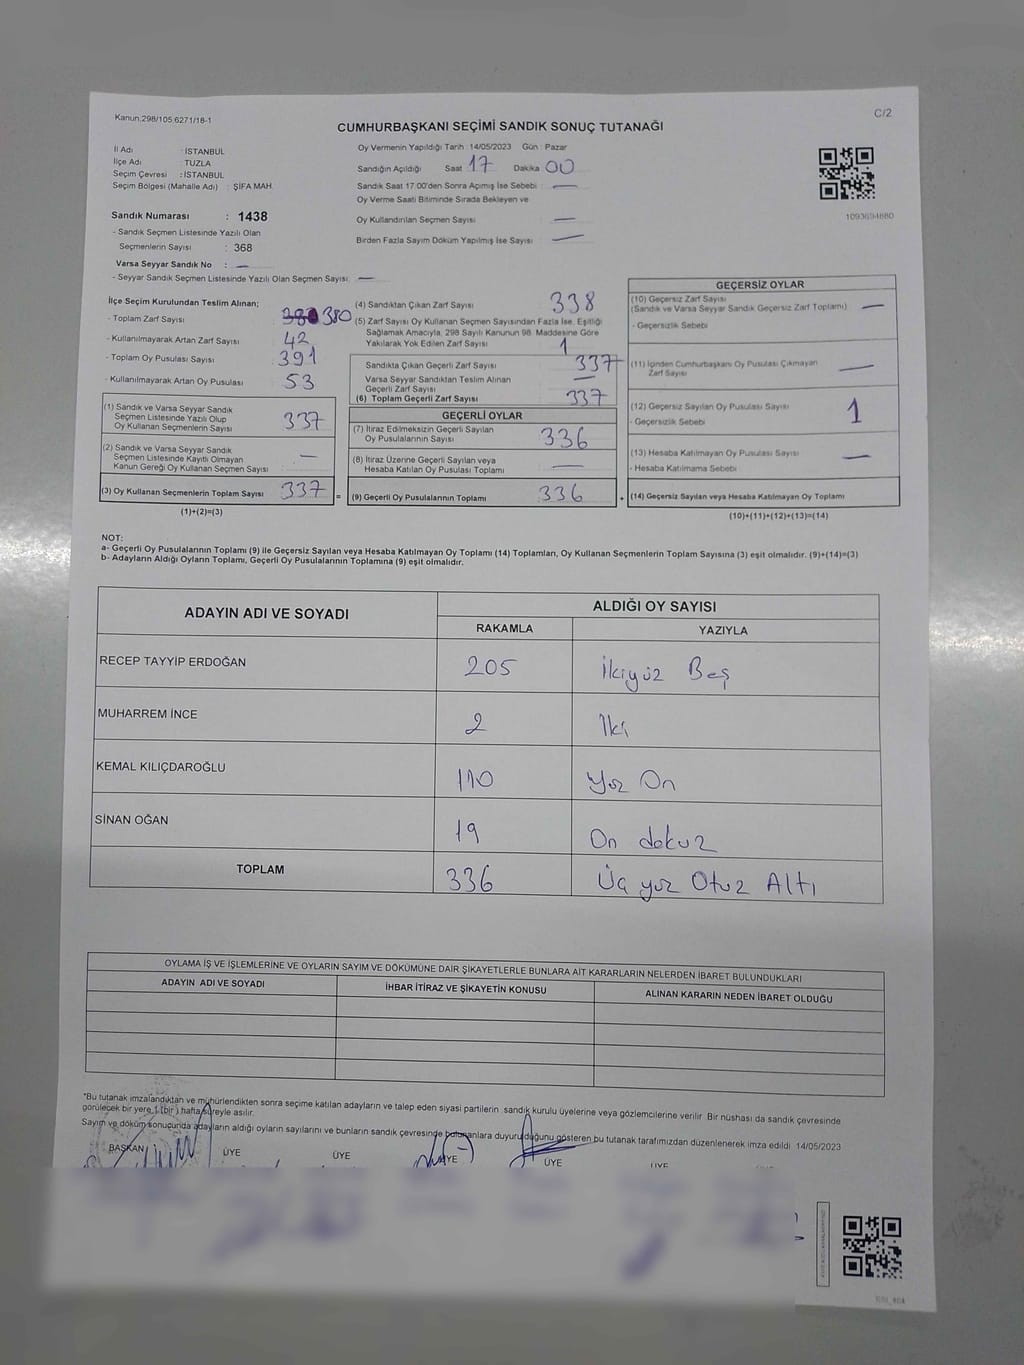 Kanun:298/105;6271/18-1
C/2
CUMHURBAŞKANI SEÇİMİ SANDIK SONUÇ TUTANAĞI
İl Adı : İSTANBUL
İlçe Adı : TUZLA
Seçim Çevresi : İSTANBUL
Seçim Bölgesi (Mahalle Adı) : ŞİFA MAH.
Sandık Numarası : 1438
- Sandık Seçmen Listesinde Yazılı Olan
Seçmenlerin Sayısı : 368
Varsa Seyyar Sandık No : —
- Seyyar Sandık Seçmen Listesinde Yazılı Olan Seçmen Sayısı: —
Oy Vermenin Yapıldığı Tarih : 14/05/2023 Gün : Pazar
Sandığın Açıldığı Saat 17 Dakika 00
Sandık Saat 17:00'den Sonra Açımış İse Sebebi : —
Oy Verme Saati Bitiminde Sırada Bekleyen ve
Oy Kullandırılan Seçmen Sayısı : —
Birden Fazla Sayım Döküm Yapılmış İse Sayısı : —
1093694880
İlçe Seçim Kurulundan Teslim Alınan;
- Toplam Zarf Sayısı : 380
- Kullanılmayarak Artan Zarf Sayısı : 42
- Toplam Oy Pusulası Sayısı : 391
- Kullanılmayarak Artan Oy Pusulası : 53
(1) Sandık ve Varsa Seyyar Sandık
Seçmen Listesinde Yazılı Olup
Oy Kullanan Seçmenlerin Sayısı : 337
(2) Sandık ve Varsa Seyyar Sandık
Seçmen Listesinde Kayıtlı Olmayan
Kanun Gereği Oy Kullanan Seçmen Sayısı : —
(3) Oy Kullanan Seçmenlerin Toplam Sayısı : 337 =
(1)+(2)=(3)
(4) Sandıktan Çıkan Zarf Sayısı : 338
(5) Zarf Sayısı Oy Kullanan Seçmen Sayısından Fazla İse, Eşitliği
Sağlamak Amacıyla, 298 Sayılı Kanunun 98. Maddesine Göre
Yakılarak Yok Edilen Zarf Sayısı : 1
Sandıkta Çıkan Geçerli Zarf Sayısı : 337
Varsa Seyyar Sandıktan Teslim Alınan
Geçerli Zarf Sayısı : —
(6) Toplam Geçerli Zarf Sayısı : 337
GEÇERLİ OYLAR
(7) İtiraz Edilmeksizin Geçerli Sayılan
Oy Pusulalarının Sayısı : 336
(8) İtiraz Üzerine Geçerli Sayılan veya
Hesaba Katılan Oy Pusulası Toplamı : —
(9) Geçerli Oy Pusulalarının Toplamı : 336 +
GEÇERSİZ OYLAR
(10) Geçersiz Zarf Sayısı
(Sandık ve Varsa Seyyar Sandık Geçersiz Zarf Toplamı) : —
- Geçersizlik Sebebi :
(11) İçinden Cumhurbaşkanı Oy Pusulası Çıkmayan
Zarf Sayısı : —
(12) Geçersiz Sayılan Oy Pusulası Sayısı : 1
- Geçersizlik Sebebi :
(13) Hesaba Katılmayan Oy Pusulası Sayısı : —
- Hesaba Katılmama Sebebi :
(14) Geçersiz Sayılan veya Hesaba Katılmayan Oy Toplamı
(10)+(11)+(12)+(13)=(14)
NOT:
a- Geçerli Oy Pusulalarının Toplamı (9) ile Geçersiz Sayılan veya Hesaba Katılmayan Oy Toplamı (14) Toplamları, Oy Kullanan Seçmenlerin Toplam Sayısına (3) eşit olmalıdır. (9)+(14)=(3)
b- Adayların Aldığı Oyların Toplamı, Geçerli Oy Pusulalarının Toplamına (9) eşit olmalıdır.
ADAYIN ADI VE SOYADI
ALDIĞI OY SAYISI
RAKAMLA YAZIYLA
RECEP TAYYİP ERDOĞAN 205 İkiyüz Beş
MUHARREM İNCE 2 İki
KEMAL KILIÇDAROĞLU 110 Yüz On
SİNAN OĞAN 19 On dokuz
TOPLAM 336 Üç yüz Otuz Altı
OYLAMA İŞ VE İŞLEMLERİNE VE OYLARIN SAYIM VE DÖKÜMÜNE DAİR ŞİKAYETLERLE BUNLARA AİT KARARLARIN NELERDEN İBARET BULUNDUKLARI
ADAYIN ADI VE SOYADI İHBAR İTİRAZ VE ŞİKAYETİN KONUSU ALINAN KARARIN NEDEN İBARET OLDUĞU
*Bu tutanak imzalandıktan ve mühürlendikten sonra seçime katılan adayların ve talep eden siyasi partilerin sandık kurulu üyelerine veya gözlemcilerine verilir. Bir nüshası da sandık çevresinde
görülecek bir yere 1 (bir) hafta süreyle asılır.
Sayım ve döküm sonucunda adayların aldığı oyların sayılarını ve bunların sandık çevresinde bulunanlara duyurulduğunu gösteren bu tutanak tarafımızdan düzenlenerek imza edildi. 14/05/2023
BAŞKAN ÜYE ÜYE ÜYE ÜYE ÜYE